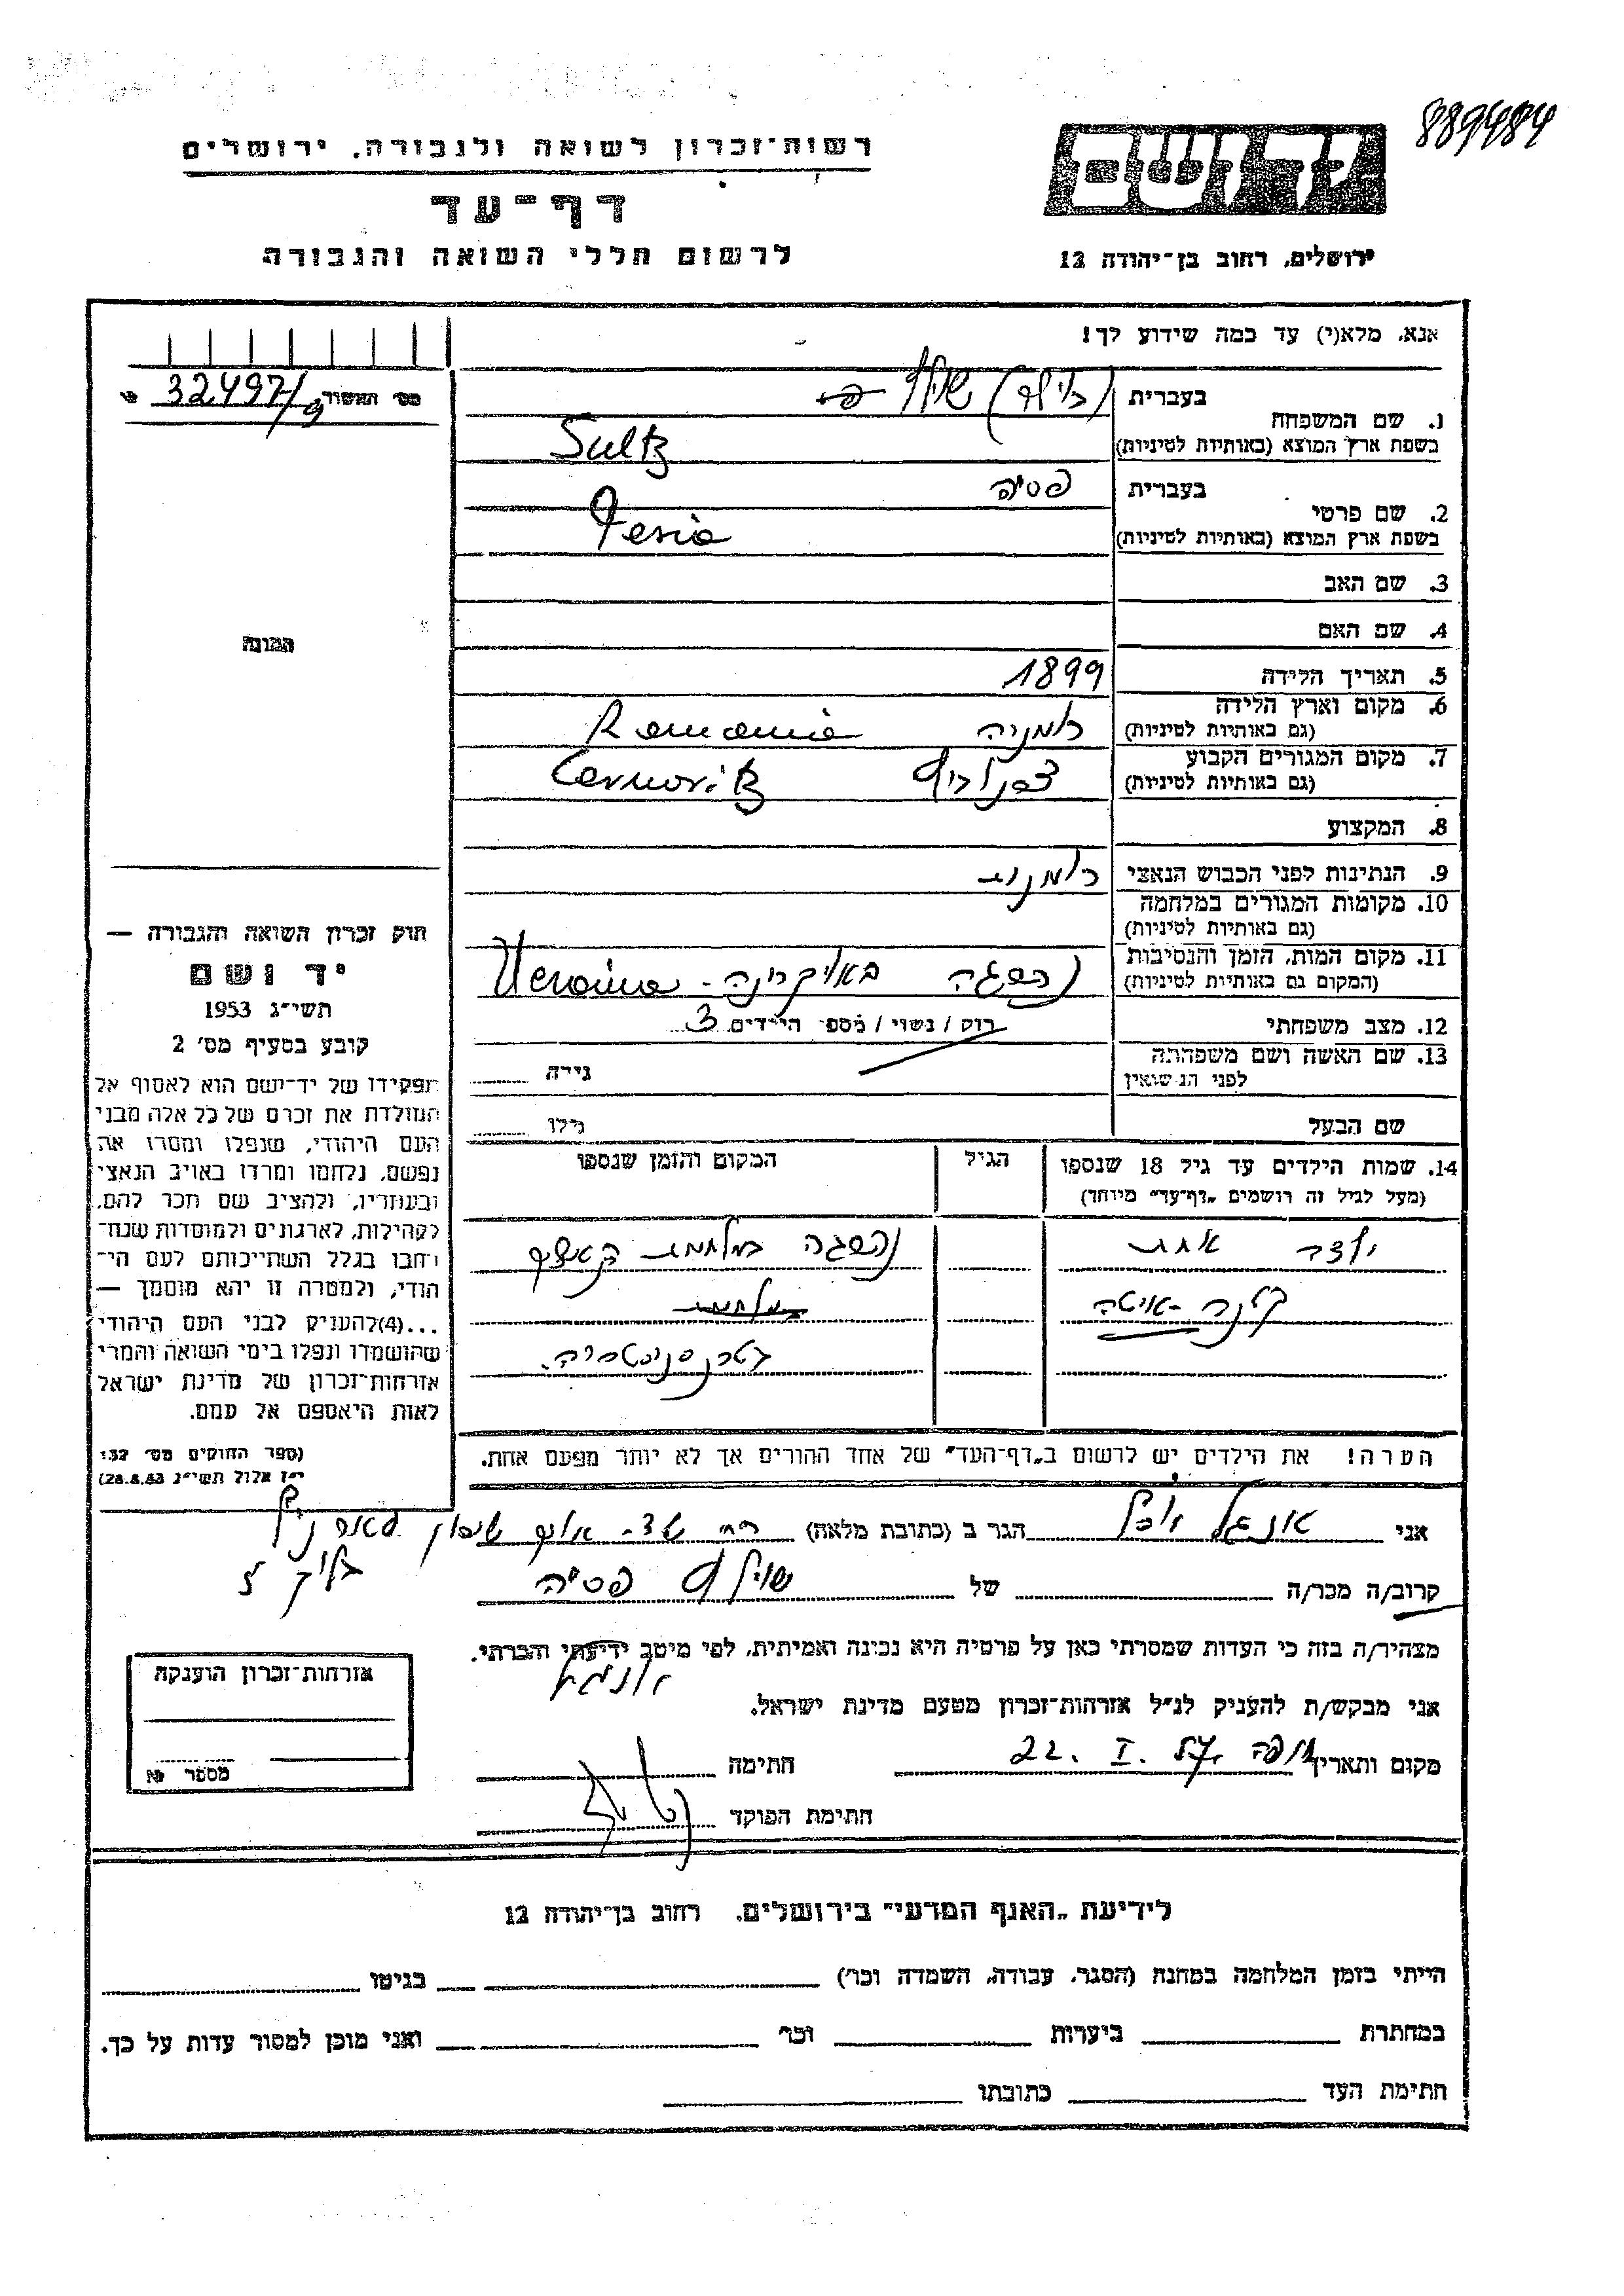 889484
רשות־זכרון לשואה ולגבורה, ירושלים
דף־עד
לרשום חללי השואה והגבורה
יד ושם
ירושלים, רחוב בן־יהודה 12
אנא, מלא(י) עד כמה שידוע לך!
מס׳ תאשור 32497/
1. שם המשפחה
בעברית שולץ
בשפת ארץ המוצא (באותיות לטיניות) Sultz
2. שם פרטי
בעברית פסיה
בשפת ארץ המוצא (באותיות לטיניות) Pesia
3. שם האב
4. שם האם
5. תאריך הלידה 1899
6. מקום וארץ הלידה
(גם באותיות לטיניות) רומניה Romania
7. מקום המגורים הקבוע
(גם באותיות לטיניות) Cernovitz
8. המקצוע
9. הנתינות לפני הכבוש הנאצי רומנית
10. מקומות המגורים במלחמה
(גם באותיות לטיניות)
11. מקום המות, הזמן והנסיבות
(המקום גם באותיות לטיניות) נספתה באוקרינה - Ucraina
12. מצב משפחתי רוק / נשוי / מספ׳ הילדים 3
13. שם האשה ושם משפחתה
לפני הנישואין גירה
שם הבעל גילו
14. שמות הילדים עד גיל 18 שנספו
(מעל לגיל זה רושמים „דף־עד״ מיוחד)
הגיל
המקום והזמן שנספו
ילדה אחת
נספתה במלחמת
קלרה -
במלחמת
בטרנסניסטריה.
הערה! את הילדים יש לרשום ב„דף־העד״ של אחד ההורים אך לא יותר מפעם אחת.
התמונה
חוק זכרון השואה והגבורה —
יד ושם
תשי״ג 1953
קובע בסעיף מס׳ 2
תפקידו של יד־ושם הוא לאסוף אל
המולדת את זכרם של כל אלה מבני
העם היהודי, שנפלו ומסרו את
נפשם, נלחמו ומרדו באויב הנאצי
ובעוזריו, ולהציב שם וזכר להם,
לקהילות, לארגונים ולמוסדות שנח־
רבו בגלל השתייכותם לעם הי־
הודי, ולמטרה זו יהא מוסמך —
...(4) להעניק לבני העם היהודי
שהושמדו ונפלו בימי השואה והמרי
אזרחות־זכרון של מדינת ישראל
לאות היאספם אל עמם.
(ספר החוקים מס׳ 132
י״ז אלול תשי״ג 28.8.53)
אני אנגל הגר ב (כתובת מלאה)
קרוב/ה מכר/ה של שולץ פסיה
מצהיר/ה בזה כי העדות שמסרתי כאן על פרטיה היא נכונה ואמיתית, לפי מיטב ידיעתי והכרתי.
אני מבקש/ת להעניק לנ״ל אזרחות־זכרון מטעם מדינת ישראל.
מקום ותאריך חיפה 22. I. חתימה
חתימת הפוקד
אזרחות־זכרון הוענקה
מספר №
לידיעת „האגף המדעי״ בירושלים, רחוב בן־יהודה 12
הייתי בזמן המלחמה במחנה (הסגר, עבודה, השמדה וכו׳) בגיטו
במחתרת ביערות וכו׳ ואני מוכן למסור עדות על כך.
חתימת העד כתובתו